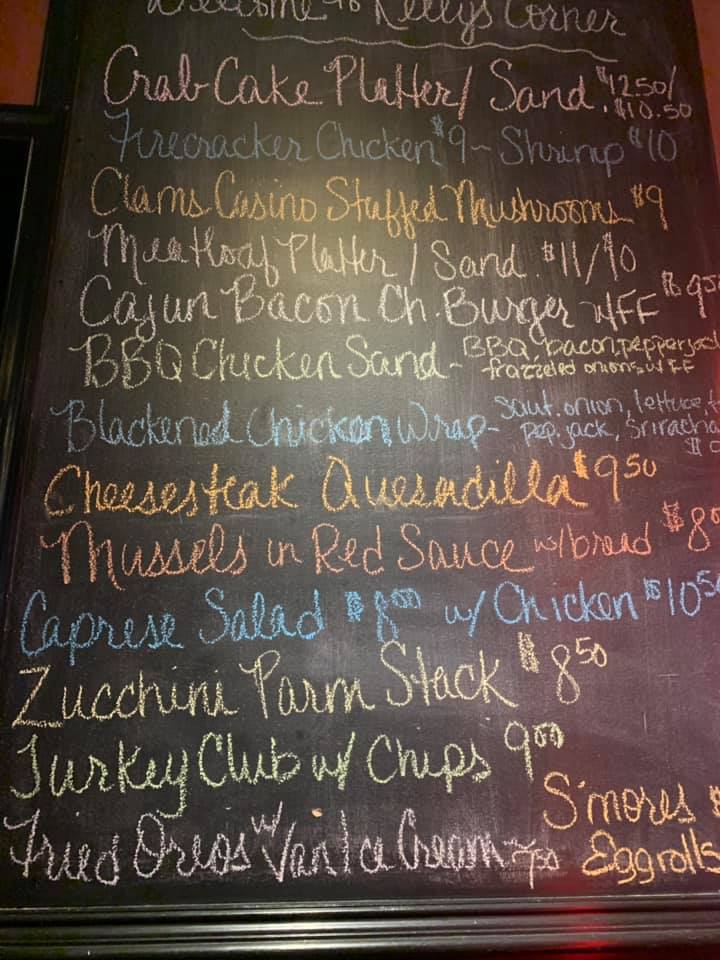 Welcome to Kellys Corner
Crab Cake Platter / Sand. $12.50/
$10.50
Firecracker Chicken $9 - Shrimp $10
Clams Casino Stuffed Mushrooms $9
Meatloaf Platter / Sand. $11/10
Cajun Bacon Ch. Burger w/FF $9.5
BBQ Chicken Sand - BBQ, bacon, pepperjack
frazzled onions w/FF
Blackened Chicken Wrap - Saut. onion, lettuce,
pep. jack, Sriracha
$
Cheesesteak Quesadilla $9.50
Mussels in Red Sauce w/bread $8
Caprese Salad $8.00 w/ Chicken $10.50
Zucchini Parm Stack $8.50
Turkey Club w/ Chips 9.00
S'mores $
Fried Oreos w/ Van Ice Cream - Eggrolls